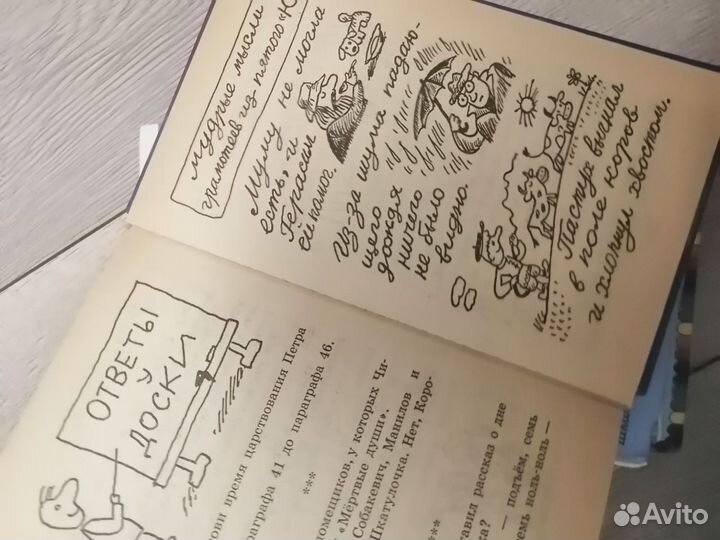 мудрые мысли
грамотеев из пятого "Ю
Муму не могла
есть, и
Герасим
ей помог.
Из-за шума падаю-
щего
дождя
ничего
не было
видно.
Пастух выгнал
в поле коров
и хлопнул хвостом.
ОТВЕТЫ
У
ДОСКИ
время царствования Петра
параграфа 41 до параграфа 46.
***
помещиков, у которых Чи-
«Мёртвые души».
Собакевич, Манилов и
Шкатулочка. Нет, Коро-
***
рассказ о дне
— подъём, семь
семь ноль-ноль —
Avito